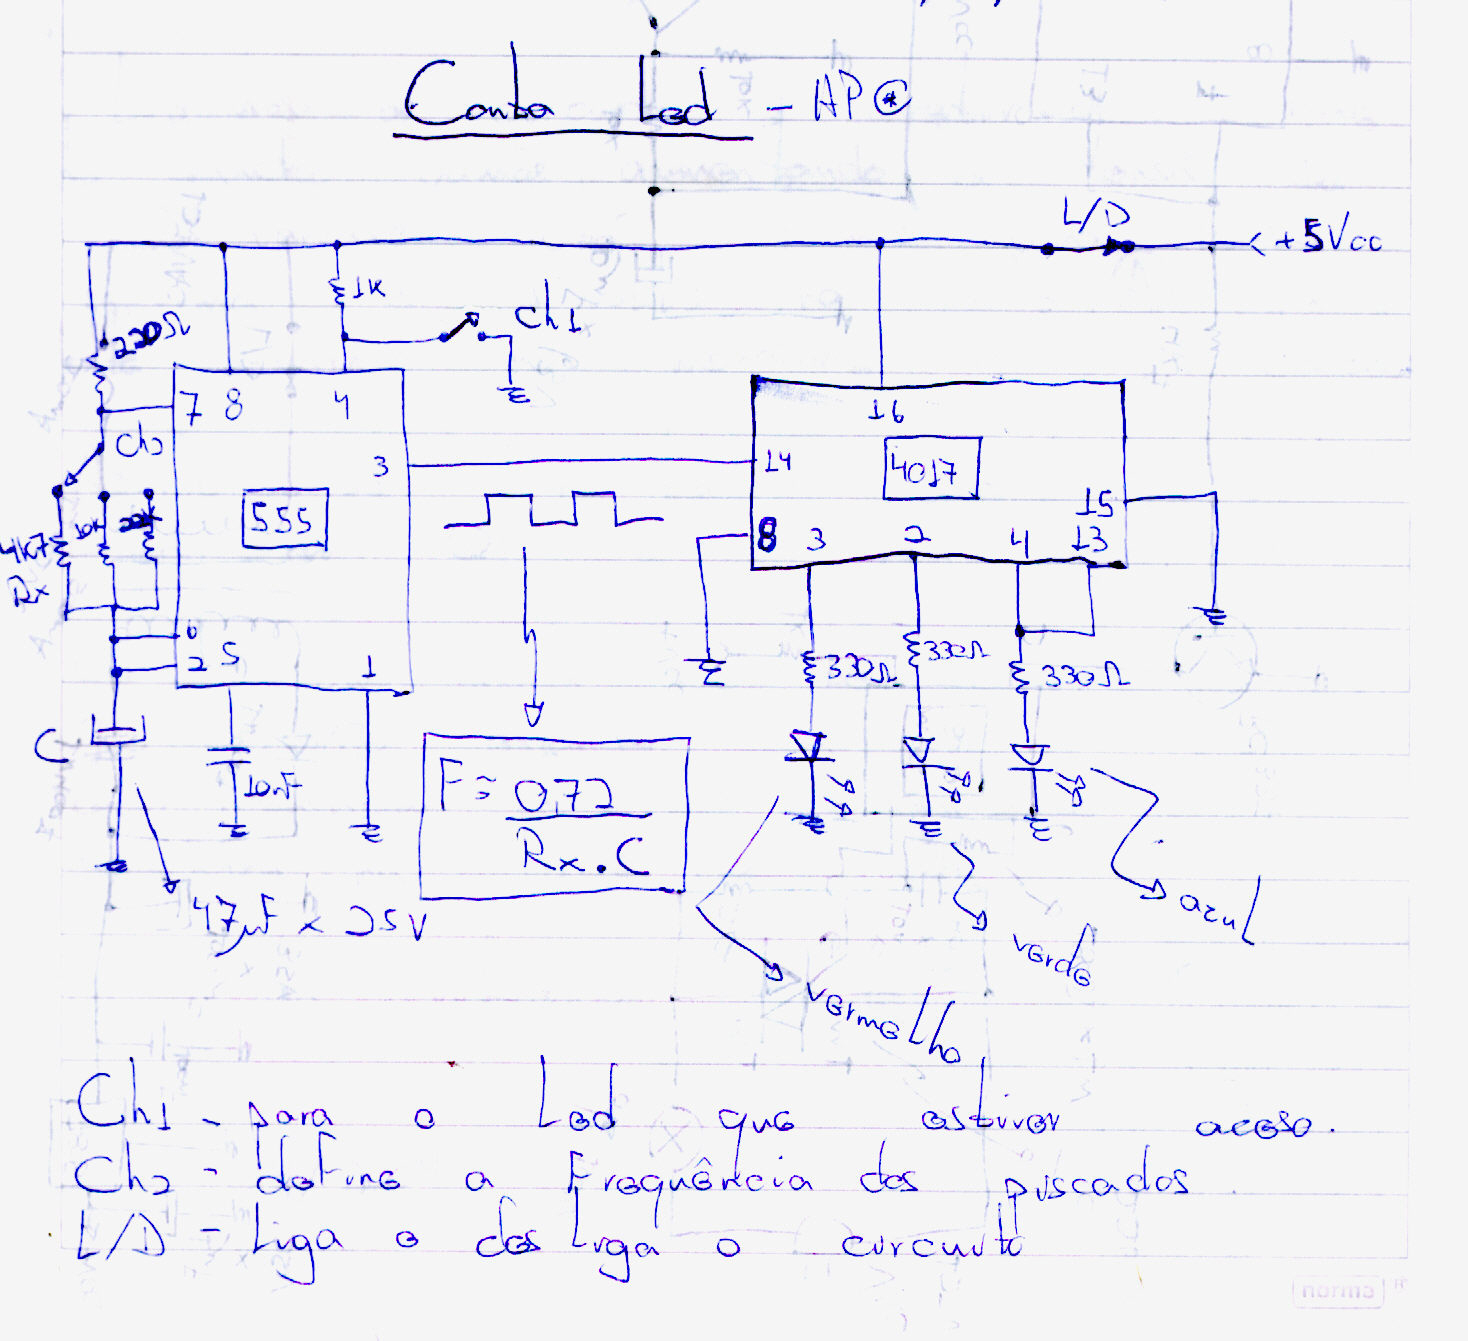 Conta Led - AP
L/D
+5Vcc
1K
ch1
220Ω
7 8 4
16
Ch2
3
14
4017
555
15
10K
4K7
8 3 2 4 13
Rx
6
2 5 1
330Ω
330Ω
330Ω
C
10nF
F ≅ 0,72
Rx.C
47µF x 25V
azul
verde
vermelho
Ch1 - para o Led que estiver aceso.
Ch2 - define a frequência das piscadas
L/D - Liga e desliga o circuito
norma